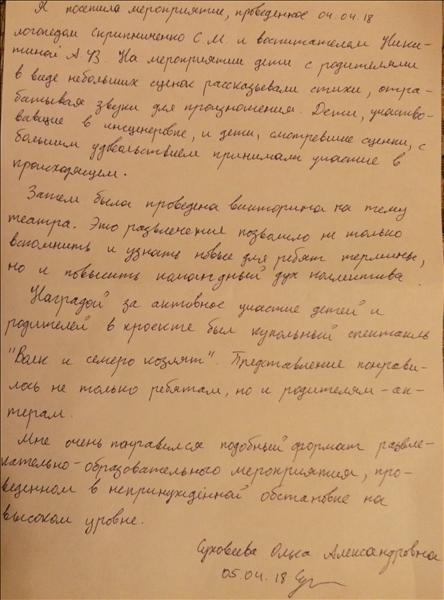 Я посетила мероприятие, проведенное 04.04.18
логопедом Скрипниченко С.М. и воспитателем Ники-
тиной А.В. На мероприятии дети с родителями
в виде небольших сценок рассказывали стихи, отра-
батывая звуки для произношения. Дети, участво-
вавшие в инсценировке, и дети, смотревшие сценки, с
большим удовольствием принимали участие в
происходящем.
Затем была проведена викторина на тему
театра. Это развлечение позволило не только
вспомнить и узнать новые для ребят термины,
но и повысить командный дух коллектива.
Наградой за активное участие детей и
родителей в проекте был кукольный спектакль
"Волк и семеро козлят". Представление понрави-
лось не только ребятам, но и родителям-ак-
терам.
Мне очень понравился подобный формат развле-
кательно-образовательного мероприятия, про-
веденном в непринуждённой обстановке на
высоком уровне.
Суховеева Ольга Александровна
05.04.18